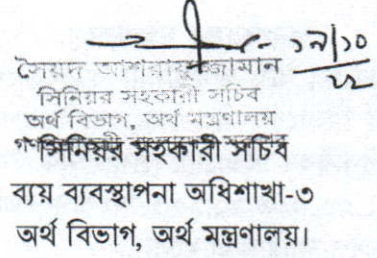 ১৯/১০
২২
সৈয়দ আশরাফুজ্জামান
সিনিয়র সহকারী সচিব
অর্থ বিভাগ, অর্থ মন্ত্রণালয়
সিনিয়র সহকারী সচিব
ব্যয় ব্যবস্থাপনা অধিশাখা-৩
অর্থ বিভাগ, অর্থ মন্ত্রণালয়।